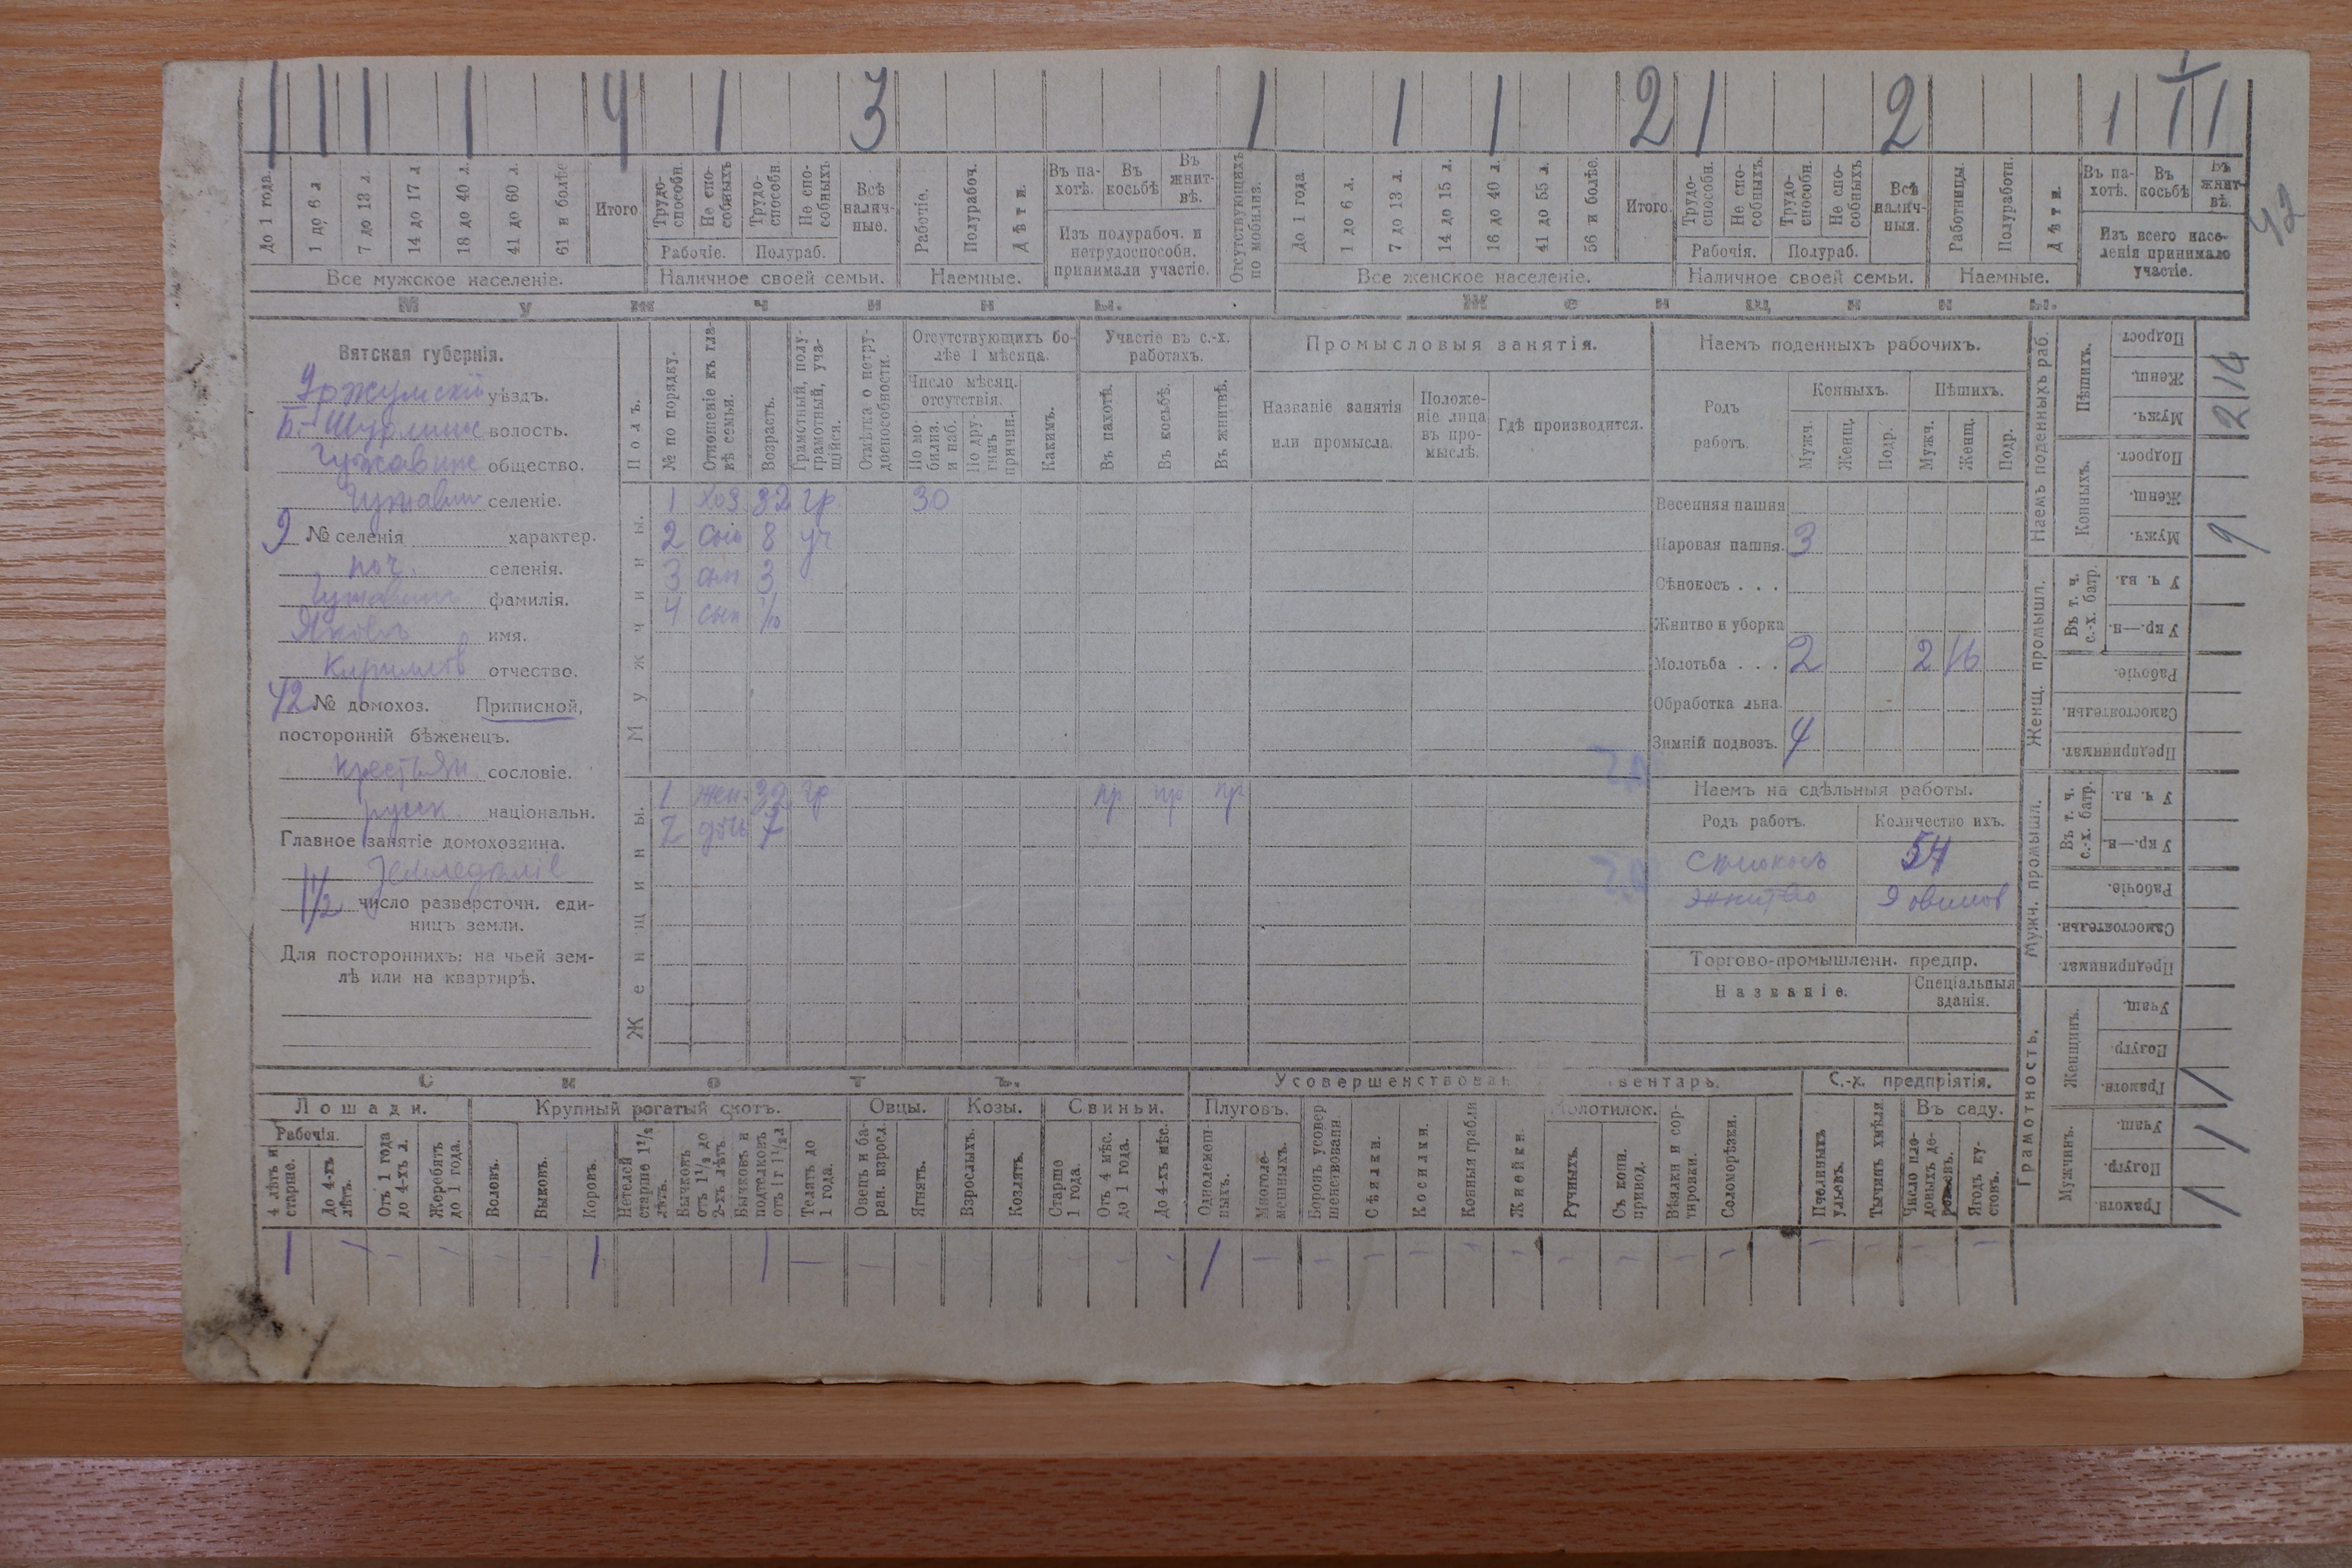 1 1 1 1 4 1 3 1 1 1 2 1 2 1 1 1
42
До 1 года. 1 до 6 л 7 до 13 л. 14 до 17 л 18 до 40 л. 41 до 60 л. 61 и болѣе Итого
Трудоспособн. Не способныхъ Трудоспособн Не способныхъ Всѣ наличные.
Рабочіе. Полураб.
Рабочіе. Полурабоч. Дѣти.
Въ пахотѣ. Въ косьбѣ Въ жнитвѣ.
Изъ полурабоч. и нетрудоспособн. принимали участіе.
Отсутствующихъ по мобилиз.
До 1 года. 1 до 6 л. 7 до 13 л. 14 до 15 л. 16 до 40 л. 41 до 55 л. 56 и болѣе. Итого.
Трудоспособн. Не способныхъ. Трудоспособн. Не способныхъ Всѣ наличныя.
Рабочія. Полураб.
Работницы. Полуработн. Дѣти.
Въ пахотѣ. Въ косьбѣ Въ жнитвѣ.
Изъ всего населенія принимало участіе.
Все мужское населеніе. Наличное своей семьи. Наемные. Все женское населеніе. Наличное своей семьи. Наемные.
Мужчины. Женщины.
Вятская губернія.
Уржумскій уѣздъ.
Б.-Шурминс волость.
Чужавинс общество.
Чужавин селеніе.
9 № селенія характер.
поч. селенія.
Чужавинъ фамилія.
Яковъ имя.
Кирилловъ отчество.
42 № домохоз. Приписной,
посторонній бѣженецъ.
крестьян сословіе.
русск національн.
Главное занятіе домохозяина.
Земледѣліе
1 1/2 число разверсточн. единицъ земли.
Для постороннихъ: на чьей землѣ или на квартирѣ.
Полъ.
№ по порядку.
Отношеніе къ главѣ семьи.
Возрастъ.
Грамотный, полуграмотный, учащійся.
Отмѣтка о нетрудоспособности.
Отсутствующихъ болѣе 1 мѣсяца.
Число мѣсяц. отсутствія.
По мобилиз. и наб.
По другимъ причин.
Какимъ.
Участіе въ с.-х. работахъ.
Въ пахотѣ. Въ косьбѣ. Въ жнитвѣ.
Промысловыя занятія.
Названіе занятія или промысла.
Положеніе лица въ промыслѣ.
Гдѣ производится.
Мужчины.
1 хоз 32 гр 30
2 сын 8 уч
3 сын 3
4 сын 1/10
Женщины.
1 жен. 32 гр пр пр пр
2 дочь 7
Наемъ поденныхъ рабочихъ.
Родъ работъ. Конныхъ. Пѣшихъ.
Мужч. Женщ. Подр. Мужч. Женщ. Подр.
Весенняя пашня
Паровая пашня. 3
Сѣнокосъ . . .
Жнитво и уборка
Молотьба . . . 2 2 16
Обработка льна.
Зимній подвозъ. 4
Наемъ на сдѣльныя работы.
Родъ работъ. Количество ихъ.
Сѣнокосъ 54
Жнитво 9 овинов
Торгово-промышленн. предпр.
Названіе. Спеціальныя зданія.
Наемъ поденныхъ раб.
Пѣшихъ. Подрост Женщ. Мужч.
Конныхъ. Подрост. Женщ. Мужч.
2 9
Женщ. промышл.
Въ т. ч. с.-х. батр. У ч. вл. У кр.—н.
Рабочіе. Самостоятельн. Предпринимат.
Мужч. промышл.
Въ т. ч. с.-х. батр. У ч. вл. У кр.—н.
Рабочіе. Самостоятельн. Предпринимат.
Грамотность.
Женщинъ. Учащ. Полугр. Грамотн.
Мужчинъ. Учащ. Полугр. Грамотн.
1 1 1
Скотъ. Усовершенствован вентарь. С.-х. предпріятія.
Лошади. Крупный рогатый скотъ. Овцы. Козы. Свиньи. Плуговъ. Молотилок. Въ саду.
Рабочія.
4 лѣтъ и старше. До 4-хъ лѣтъ. Отъ 1 года до 4-хъ л. Жеребятъ до 1 года.
Воловъ. Быковъ. Коровъ. Нетелей старше 1 1/2 лѣтъ. Бычковъ отъ 1 1/2 до 2-хъ лѣтъ. Бычковъ и подтелковъ отъ 1 г 1 1/2 л Телятъ до 1 года.
Овецъ и баран. взросл. Ягнятъ.
Взрослыхъ. Козлятъ.
Старше 1 года. Отъ 4 мѣс. до 1 года. До 4-хъ мѣс.
Однолемешныхъ. Многолемешныхъ. Боронъ усовершенствованн. Сѣялки. Косилки. Конныя грабли Жнейки. Ручныхъ. Съ конн. привод. Вѣялки и сортировки. Соломорѣзки.
Пчелиныхъ ульевъ. Тычинъ хмѣля Число плодовыхъ деревьевъ. Ягодъ кустовъ.
1 — — — — — 1 1 — — — — — 1 — — — — — — — — — — — — — —